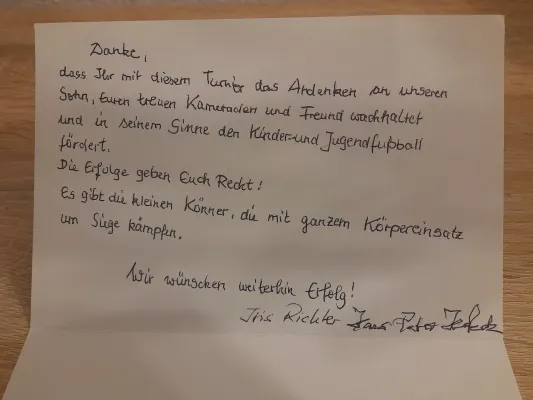 Danke,
dass Ihr mit diesem Turnier das Andenken an unseren
Sohn, Euren treuen Kameraden und Freund wachhaltet
und in seinem Sinne den Kinder-und Jugendfußball
fördert.
Die Erfolge geben Euch Recht!
Es gibt die kleinen Könner, die mit ganzem Körpereinsatz
um Siege kämpfen.
Wir wünschen weiterhin Erfolg!
Iris Richter Hans Peter